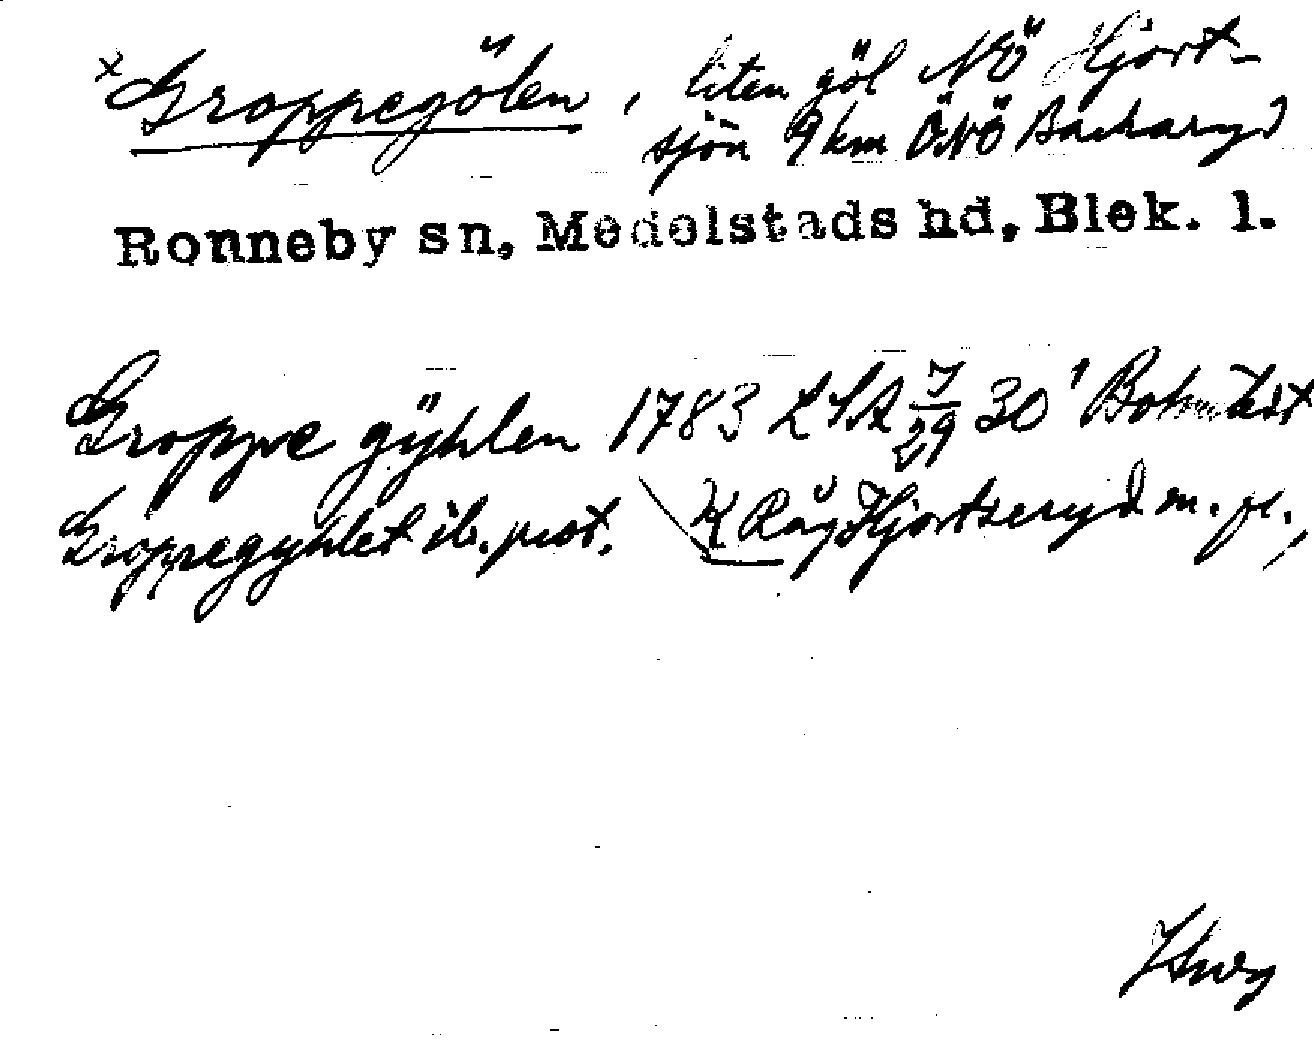 × Groppegölen, liten göl NÖ Hjort-
sjön 9 km ÖNÖ Backaryd
Ronneby sn, Medelstads hd, Blek. l.
Groppe gÿhlen 1783 LSA 7/29 30
Groppegÿhlet ib. prot. K Råg Hjortseryd m. fl.,